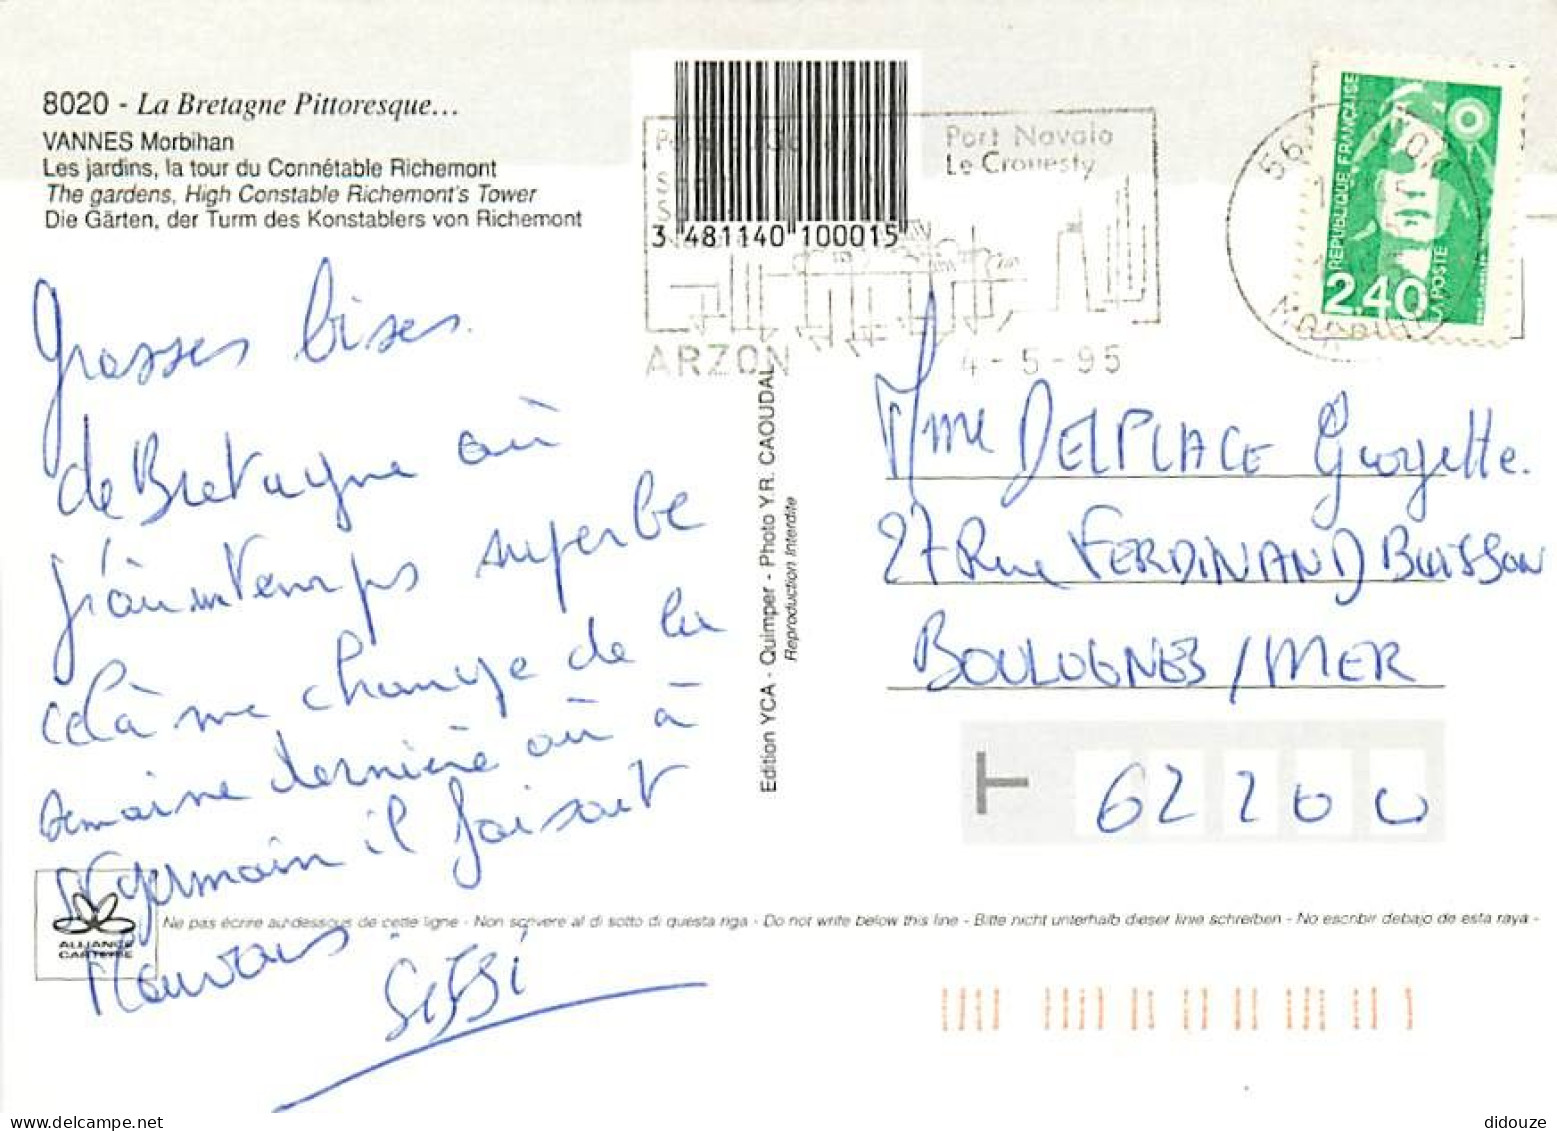 8020 - La Bretagne Pittoresque...
VANNES Morbihan
Les jardins, la tour du Connétable Richemont
The gardens, High Constable Richemont's Tower
Die Gärten, der Turm des Konstablers von Richemont
3 481140 100015
Port Navalo
Le Crouesty
ARZON
4-5-95
56
MORBIHAN
REPUBLIQUE FRANÇAISE
2,40
LA POSTE
Grosses bises
de Bretagne où
j'ai un temps superbe
celà me change de la
semaine dernière où à
St Germain il faisait
Mauvais.
SISSI
Edition YCA - Quimper - Photo Y.R. CAOUDAL
Reproduction Interdite
Mme DELPLACE Guyette.
27 Rue FERDINAND BUISSON
BOULOGNES/MER
62200
Ne pas écrire au-dessous de cette ligne - Non scrivere al di sotto di questa riga - Do not write below this line - Bitte nicht unterhalb dieser linie schreiben - No escribir debajo de esta raya -
ALLIANCE
CARTERIE
didouze